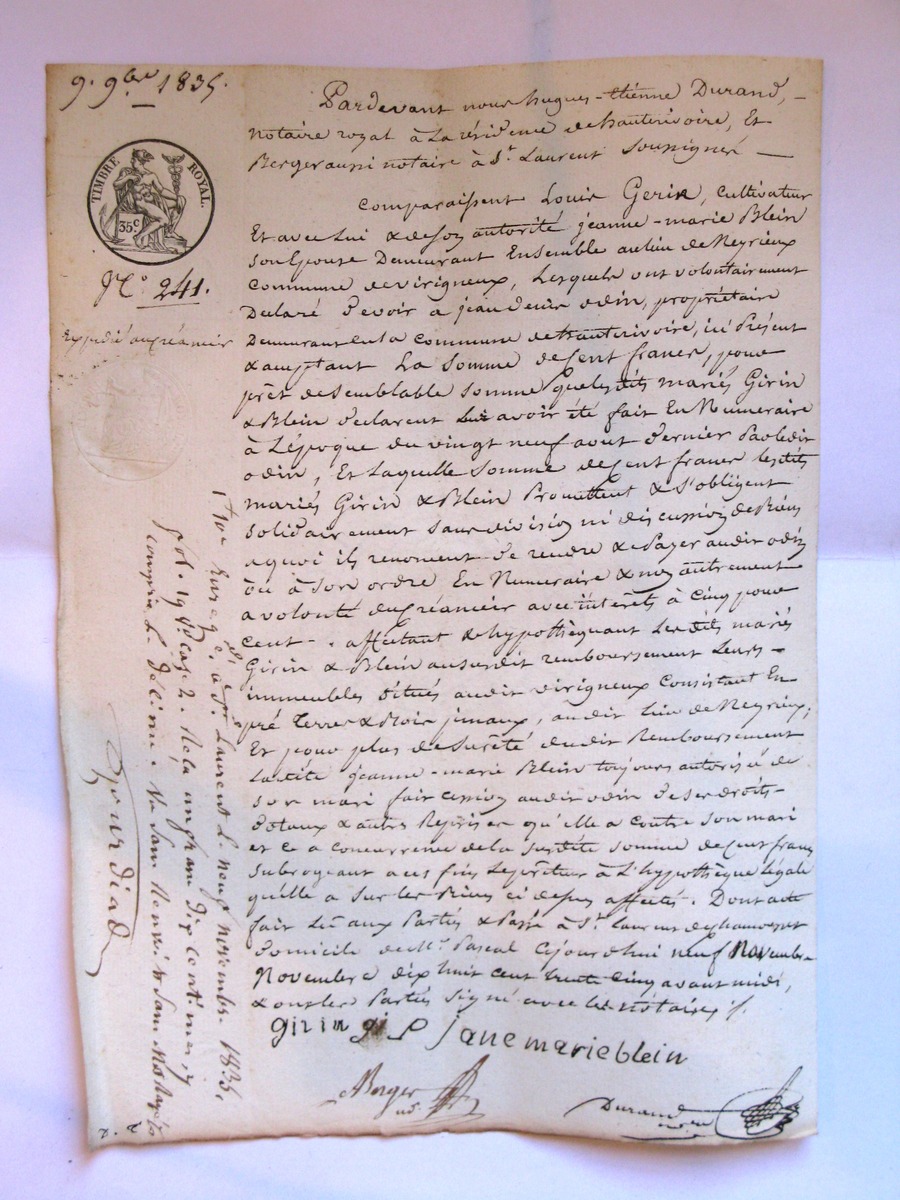 9. 9bre 1835.
TIMBRE ROYAL.
35c
N° 241.
Expédié au créancier
Pardevant nous hugues-étienne Durand,
notaire royal à La résidence de hauterivoire, Et
Berger aussi notaire à St. Laurent Soussignés
Comparaissent Louis Gerin, cultivateur
Et avec Lui & de Son autorité jeanne-marie Blein
son Epouse Demeurant Ensemble au lieu de Neyrieux
commune de virigneux, Lesquels ont volontairement
Declaré Devoir à jean denis odin, propriétaire
Demeurant en la commune de hauterivoire, ici Présent
& acceptant La Somme de Cent francs, pour
prêt de Semblable Somme que les dits mariés Girin
& Blein Déclarent Lui avoir été fait En Numéraire
à L'époque du vingt neuf aout Dernier Par ledit
odin, Et Laquelle Somme de Cent francs les dits
mariés Girin & Blein Promettent & S'obligent
Solidairement Sans division ni discussion de Biens
a quoi ils renoncent De rendre & Payer audit odin
ou à Son ordre En Numéraire & non autrement
a volonté du Créancier avec intérêts à Cinq pour
cent. affectant & hypothèquant Les dits mariés
Girin & Blein au susdit remboursement Leurs
immeubles Situés au dit virigneux Consistant En
pré Terres & Bois au dit lieu de Neyrieux;
Et pour plus de Sureté du dit Remboursement
La dite jeanne-marie Blein toujours autorisée de
son mari fait cession audit odin De ses droits
Dotaux & autres Reprises qu'elle a contre son mari
et Ce a concurrence de la susdite somme de Cent francs
Subrogeant a ces fins Le prêteur à L'hypothèque Légale
qu'elle a Sur Les Biens ci dessus affectés. Dont acte
fait Lu aux Parties & Passé à St. Laurent de chamousset
Domicile de Mr. Pascal Cejourd'hui neuf Novembre
Novembre dix huit cent trente Cinq avant midi,
& ont les Parties Signé avec les notaires
girin gi P jane marie blein
Berger
nre
Durand
nre
Enreg. à St. Laurent L. neuf novembre 1835.
fol. 19 Vo. case 2. Reçu un franc dix centimes y
compris L. Décime
Gourdiad